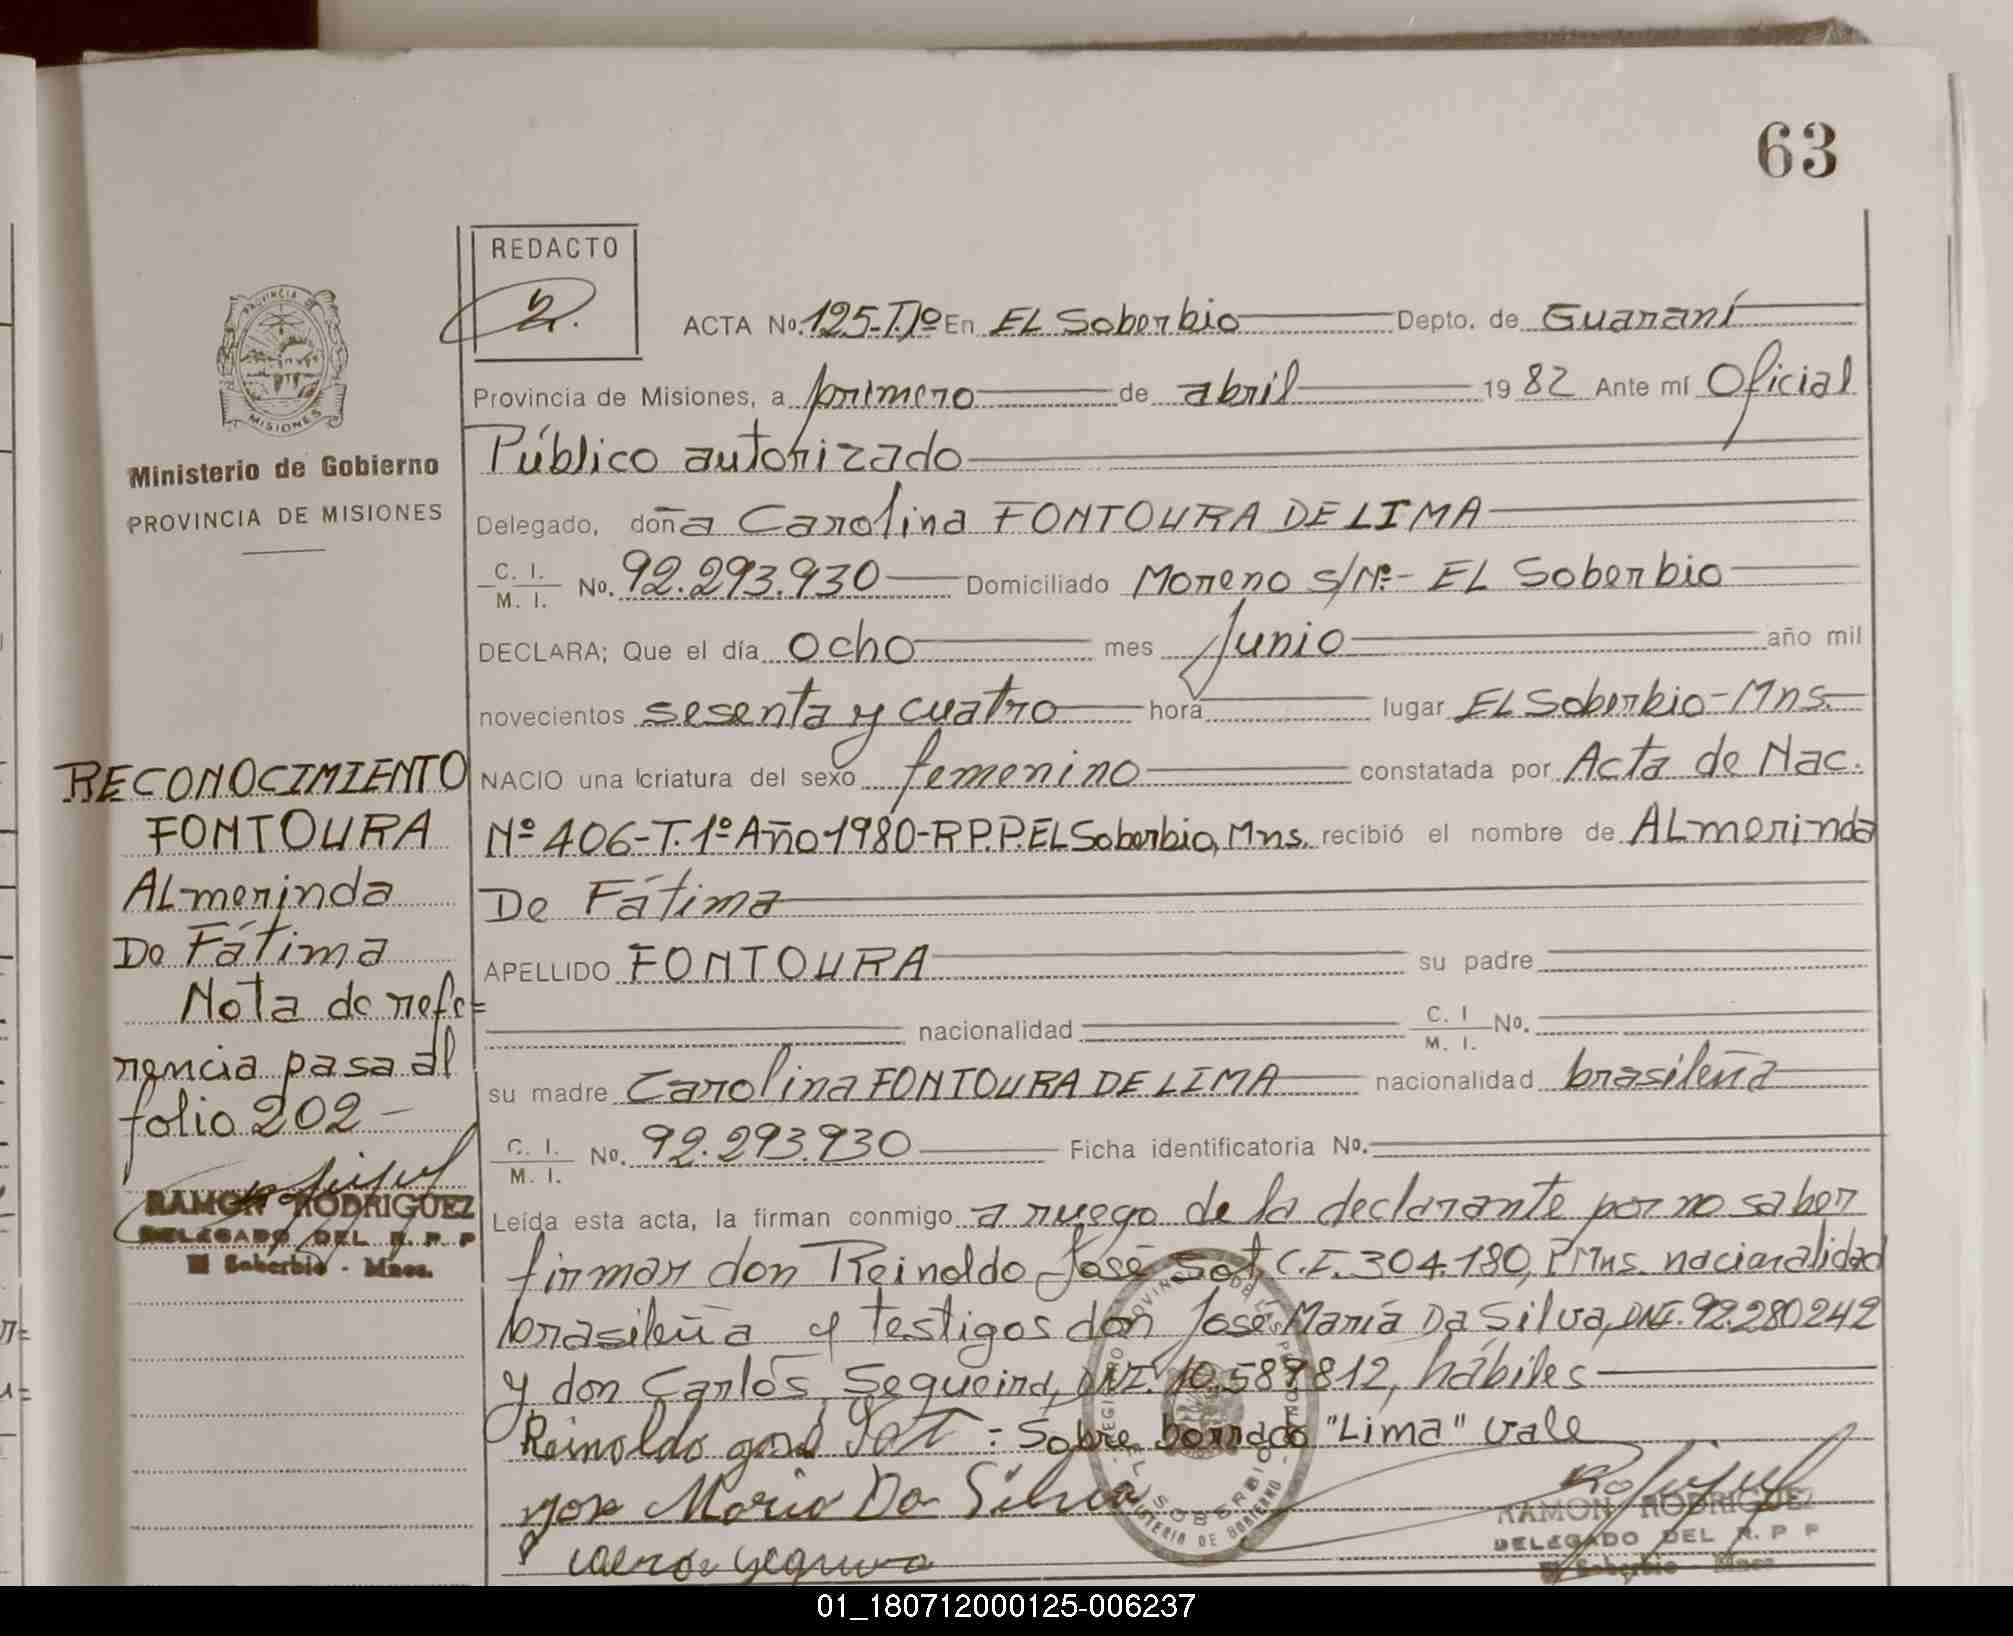 63
REDACTO
2.
ACTA No. 125-T.1º En EL Soberbio Depto. de Guaraní
Provincia de Misiones, a primero de abril 1982 Ante mí Oficial
Público autorizado
PROVINCIA DE
MISIONES
Ministerio de Gobierno
PROVINCIA DE MISIONES
Delegado, doña Carolina FONTOURA DE LIMA
C. I. M. I. No. 92.293.930 Domiciliado Moreno S/Nº.- EL Soberbio
DECLARA; Que el día ocho mes Junio año mil
novecientos sesenta y cuatro hora lugar EL Soberbio-Mns.
NACIO una criatura del sexo femenino constatada por Acta de Nac.
Nº 406-T.1º Año 1980-R.P.P. EL Soberbio, Mns. recibió el nombre de ALmerinda
De Fátima
APELLIDO FONTOURA su padre
nacionalidad C. I M. I. No.
su madre Carolina FONTOURA DE LIMA nacionalidad brasileña
C. I. M. I. No. 92.293.930 Ficha identificatoria No.
Leída esta acta, la firman conmigo a ruego de la declarante por no saber
firmar don Reinoldo José Sot, C.I. 304.180, P. Mns. nacionalidad
brasileña y testigos don José María Da Silva, DNI. 92.280242
y don Carlos Sequeira, DNI. 10.589812, hábiles
Reinoldo José Sot = Sobre borrado "Lima" vale
Jose Maria Da Silva
RECONOCIMIENTO
FONTOURA
ALmerinda
De Fátima
Nota de refe=
rencia pasa al
folio 202-
RAMON RODRIGUEZ
DELEGADO DEL R. P. P
El Soberbio - Mnes.
EL SOBERBIO
MINISTERIO DE GOBIERNO
RAMON RODRIGUEZ
DELEGADO DEL R. P P
El Soberbio Mnes
01_180712000125-006237